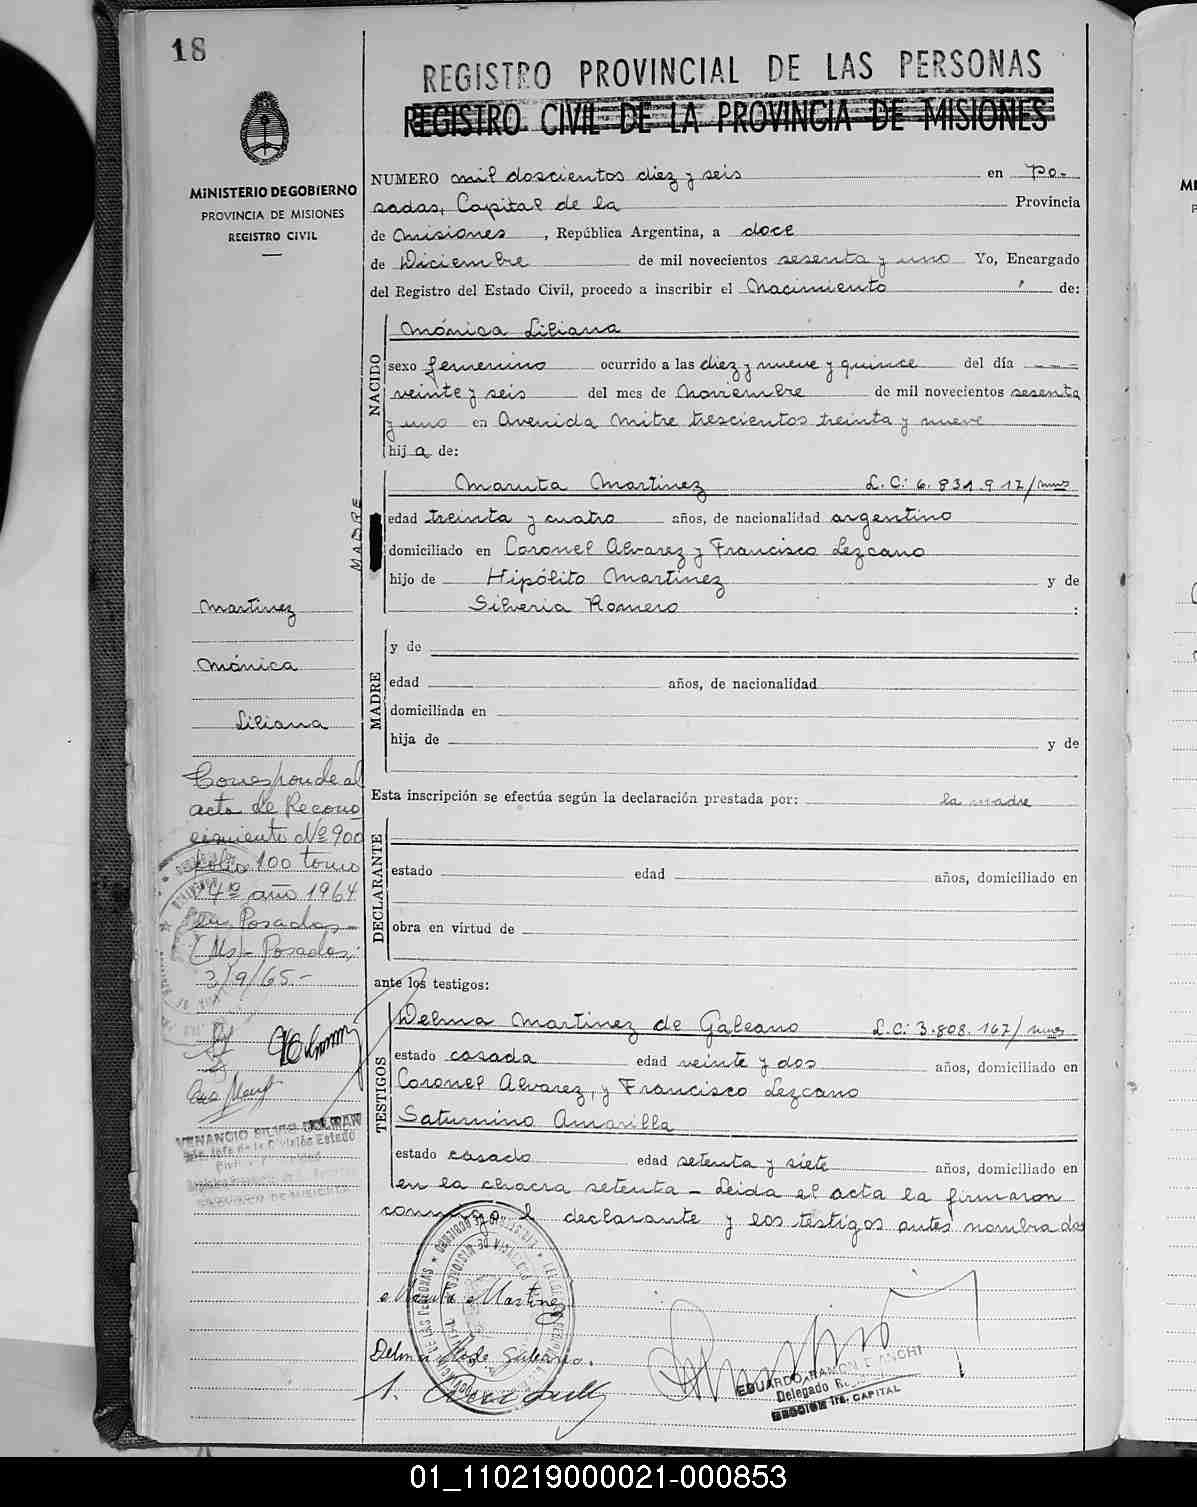 18
REGISTRO PROVINCIAL DE LAS PERSONAS
REGISTRO CIVIL DE LA PROVINCIA DE MISIONES
MINISTERIO DE GOBIERNO
PROVINCIA DE MISIONES
REGISTRO CIVIL
NUMERO mil doscientos diez y seis en Po-
sadas, Capital de la Provincia
de Misiones, República Argentina, a doce
de Diciembre de mil novecientos sesenta y uno Yo, Encargado
del Registro del Estado Civil, procedo a inscribir el Nacimiento de:
NACIDO
Mónica Liliana
sexo femenino ocurrido a las diez y nueve y quince del día
veinte y seis del mes de Noviembre de mil novecientos sesenta
y uno en Avenida Mitre trescientos treinta y nueve
hija de:
MADRE
Maruta Martinez L.C: 6.831.917/mns
edad treinta y cuatro años, de nacionalidad argentino
domiciliado en Coronel Alvarez y Francisco Lezcano
hijo de Hipólito Martinez y de
Silveria Romero :
MADRE
y de
edad años, de nacionalidad
domiciliada en
hija de y de
Martinez
Mónica
Liliana
Corresponde al
acta de Recono
cimiento Nº 900
folio 100 tomo
4º año 1964
en Posadas
(Ms)- Posadas,
3/9/65.-
Esta inscripción se efectúa según la declaración prestada por: la madre
DECLARANTE
estado edad años, domiciliado en
obra en virtud de
ante los testigos:
TESTIGOS
Delma Martinez de Galeano L.C: 3.808.167/mns
estado casada edad veinte y dos años, domiciliado en
Coronel Alvarez, y Francisco Lezcano
Saturnino Amarilla
estado casado edad setenta y siete años, domiciliado en
en la chacra setenta - Leida el acta la firmaron
conmigo el declarante y los testigos antes nombrados
Maruta Martinez
Delma M de Galeano.
VENANCIO
EDUARDO RAMON
Delegado
SECCION 1ra. CAPITAL
01_110219000021-000853